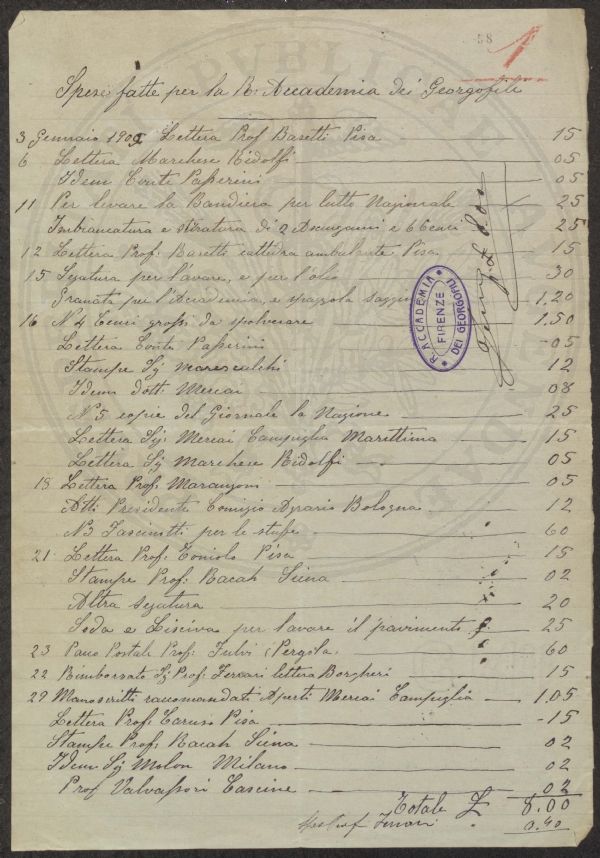 58 1
Spese fatte per la R. Accademia dei Georgofili
3 Gennaio 1909 Lettera Prof Baretti Pisa 15
6 Lettera Marchese Ridolfi 05
Idem Conte Passerini 05
11 Per levare la Bandiera per lutto Nazionale 25
Imbiancatura e stiratura di 2 Asciugami e 6 Cenci 25
12 Lettera Prof. Baretti cattedra ambulante Pisa 15
15 Segatura per lavare, e per l'olio 30
Granata per l'Accademia, e spazzola 1.20
16 N 4 Cenci grossi da spolverare 1.50
Lettera Conte Passerini 05
Stampe Sig Marescalchi 12
Idem Dott. Mercai 08
N 5 copie del Giornale la Nazione 25
Lettera Sig. Mercai Campiglia Marittima 15
Lettera Sig Marchese Ridolfi 05
18 Lettera Prof. Marangoni 05
Atti Presidente Comizio Agrario Bologna 12
N 3 Fascinotti per le stufe 60
21 Lettera Prof. Toniolo Pisa 15
Stampe Prof. Bacah Siena 02
Altra segatura 20
Soda e Lisciva per lavare il pavimento 25
23 Postali Prof. Fulvi (Pergola) 60
22 Rimborsato Sig Prof. Ferrari lettera Borgheri 15
29 Manoscritti raccomandati Aperti Mercai Campiglia 1.05
Lettera Prof. Caruso Pisa 15
Stampe Prof. Bacah Siena 02
Idem Sig Molon Milano 02
Prof Valvassori Cascine 02
Totale £ 8.00
Prof Ferrari 0.40
R. ACCADEMIA
DEI GEORGOFILI
FIRENZE